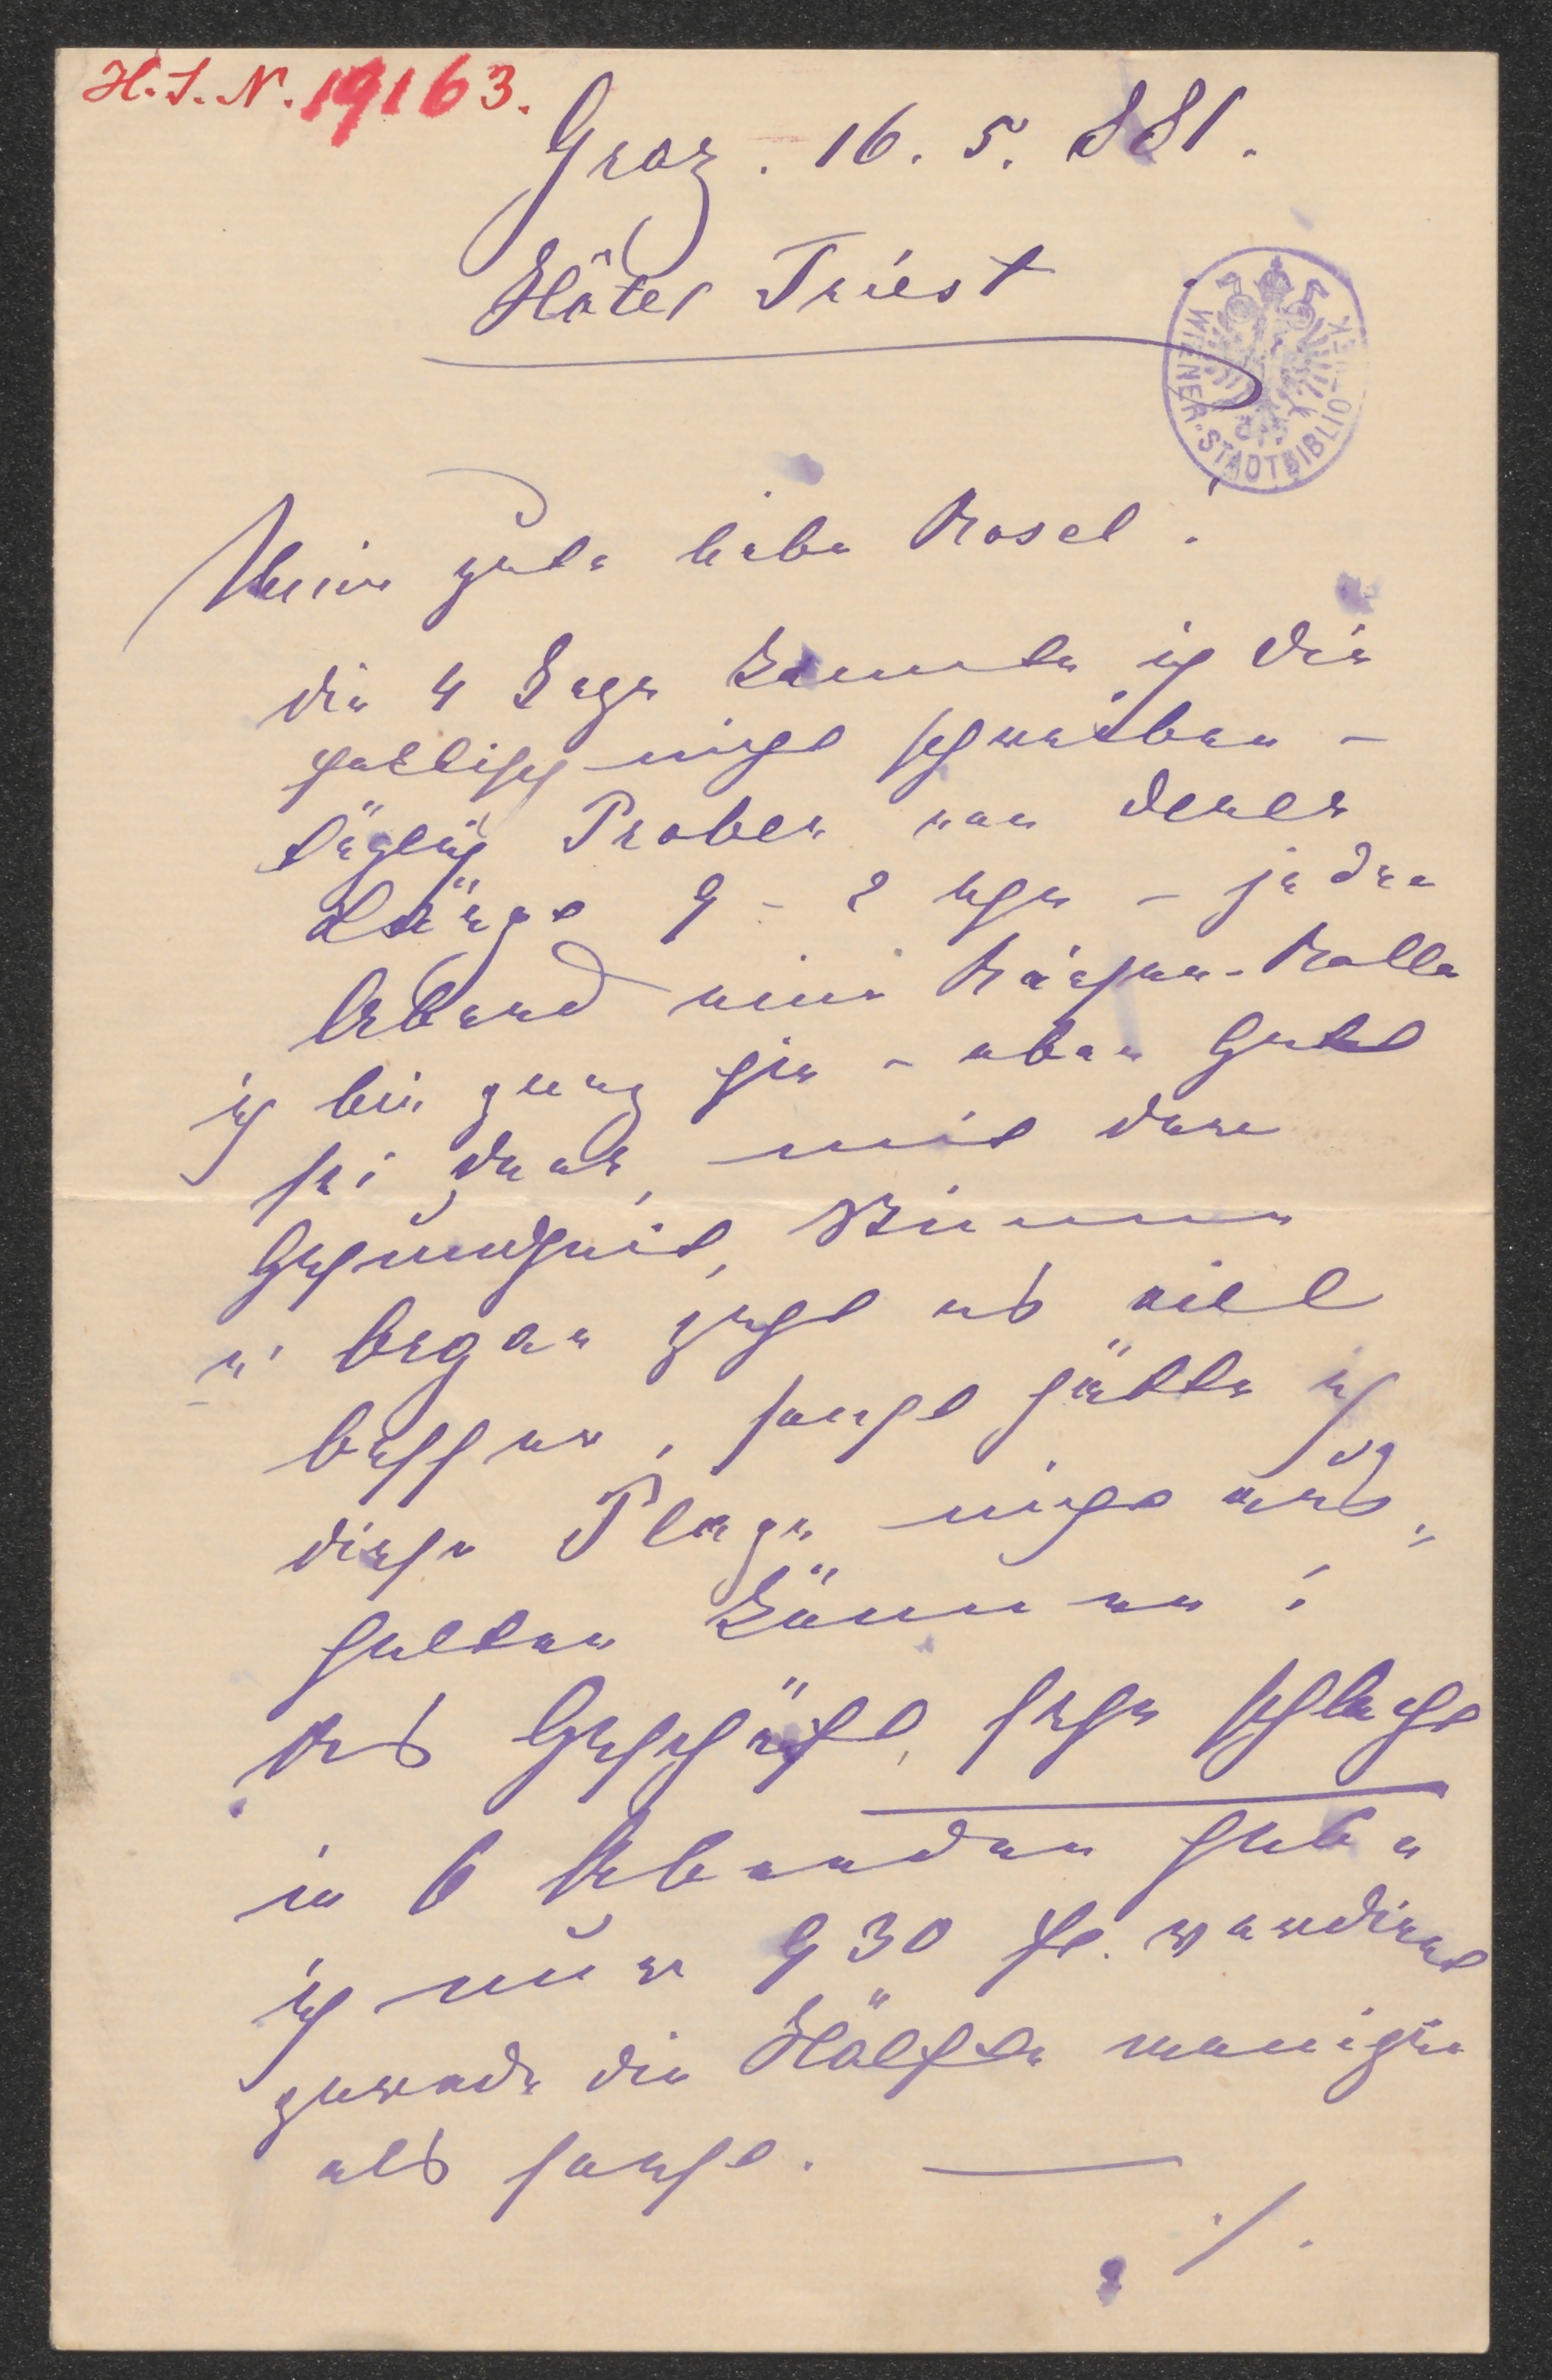 H.I.N. 19163.
Graz. 16. 5. 881.
Hôtel Triest
WIENER·STADTBIBLIOTHEK
Meine gute liebe Rosel!
die 4 Tage konnte ich Dir
faktisch nicht schreiben –
täglich Proben von
9 – 2 Uhr – jeden
Abend eine Riesen-Rolle
ich bin ganz hin – aber Gott
sei Dank, mit der
Gesundheit, Stimme
u Organ geht es viel
besser, sonst hätte ich
diese Plage nicht aus-
halten können!
das Geschäft, sehr schlecht
in 6 Abenden habe
ich nur 930 fl. verdient
gerade die Hälfte weniger
als sonst. —
./.